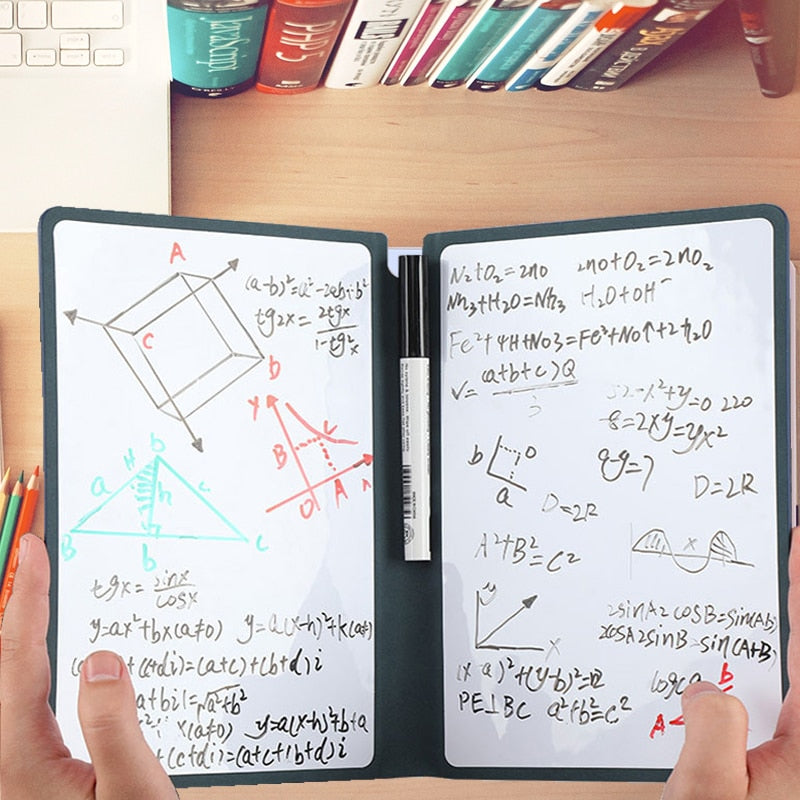 JavaScript
PHP 5
A
C
D
(a-b)²=a²-2ab+b²
tg2x= 2tgx
1-tg²x
Y
B
C
O
A
b
H
a
h
c
B
b
C
tgx= sinx
cosx
y=ax²+bx(a≠0) y=a(x-h)²+k(a≠
+(c+di)=(a+c)+(b+d)i
a+bi|=√a²+b²
x(a≠0) y=a(x-h)²+b+a
+(c+di)=(a+c+(b+d)i
N2+O2=2no 2no+O2=2NO2
Nh3+H2O=Nh3 H2O+OH⁻
Fe²+4H+No3=Fe²+No↑+2h2O
V= (a+b+c)Q
-x²+y=0 220
-8=2xy=yx²
b
O
a
D=2R
D=2R
A²+B²=C²
x
y
x
2sinA2cosB=sin(Ab)
2cosA2sinB=sin(A+B)
(x-a)²+(y-b)²=
PE⊥BC a²+b²=c²
b
A